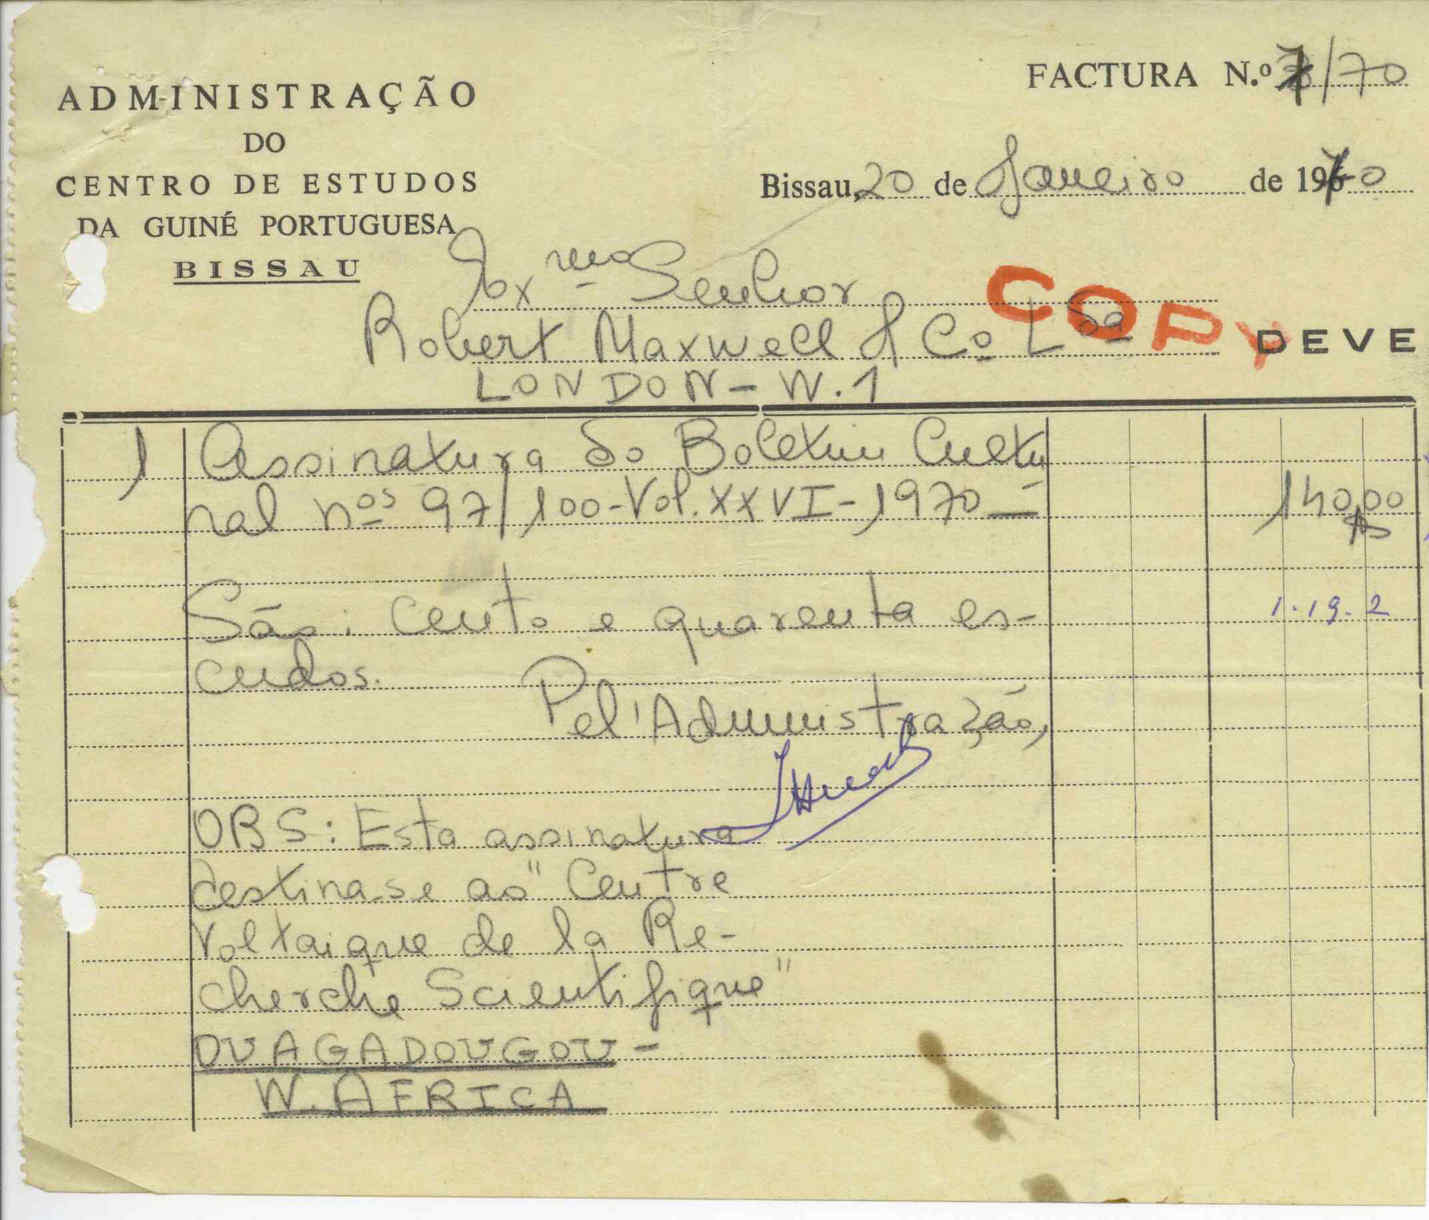 ADMINISTRAÇÃO
DO
CENTRO DE ESTUDOS
DA GUINÉ PORTUGUESA
BISSAU
FACTURA N.º 7/70
Bissau, 20 de Janeiro de 1970
Exmo Senhor
Robert Maxwell & Cº Lda
LONDON - W.1
COPY
DEVE
1 Assinatura do Boletim Cultu
ral nºs 97/100-Vol.XXVI-1970 — 140,00
São: cento e quarenta es-
1.19.2
cudos.
Pel'Administração,
OBS: Esta assinatura
destina-se ao "Centre
Voltaique de la Re-
cherche Scientifique"
OUAGADOUGOU -
W. AFRICA